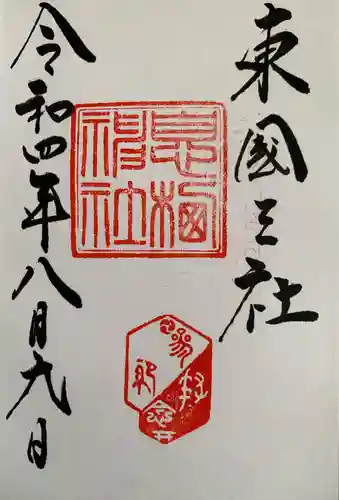 東國三社
息栖神社
令和四年八月九日